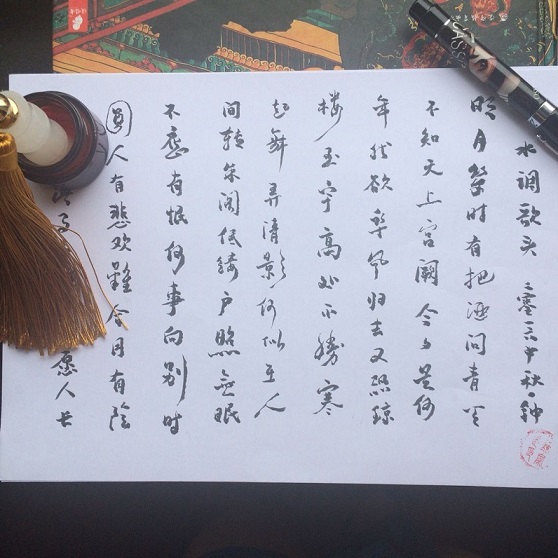 水调歌头
明月幾时有把酒问青天
不知天上宫阙今夕是何
年我欲乘风归去又恐琼
楼玉宇高处不胜寒
起舞弄清影何似在人
间转朱阁低绮户照無眠
不應有恨何事向别时
圆人有悲欢離合月有陰
愿人长